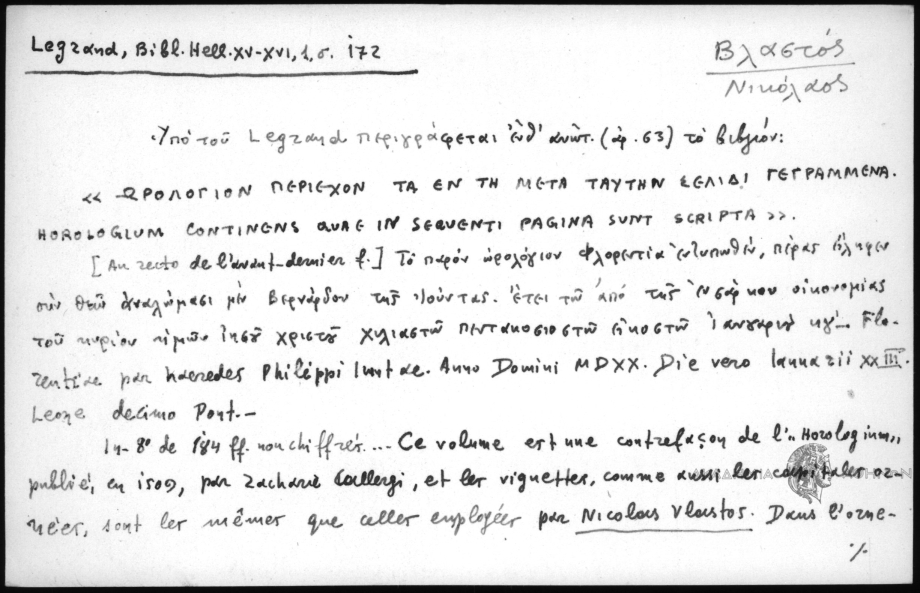 Legrand, Bibl. Hell. XV-XVI, 1, σ. 172
Βλαστός
Νικόλαος
Ὑπό τοῦ Legrand περιγράφεται ἐνθ' ἀνωτ. (ἀρ. 63) τό βιβλίον:
« ΩΡΟΛΟΓΙΟΝ ΠΕΡΙΕΧΟΝ ΤΑ ΕΝ ΤΗ ΜΕΤΑ ΤΑΥΤΗΝ ΣΕΛΙΔΙ ΓΕΓΡΑΜΜΕΝΑ.
HOROLOGIUM CONTINENS QUAE IN SEQUENTI PAGINA SUNT SCRIPTA ».
[Au recto de l'avant-dernier f.] Τό παρόν ὡρολόγιον Φλορεντία ἐντυπωθέν, πέρας εἴληφεν
σύν θεῷ ἀναλώμασι μέν Βερνάρδου τῆς Ἰούντας. Ἔτει τῶ ἀπό τῆς ἐνσάρκου οἰκονομίας
τοῦ κυρίου ἡμῶν ἰησοῦ χριστοῦ χιλιαστῶ πεντακοσιοστῶ εἰκοστῶ ἰανουαρίου κγ' – Flo-
rentiae par haeredes Philippi Iuntae. Anno Domini MDXX. Die vero Iannarii XXIII.
Leone decimo Pont.–
In-8° de 184 ff. non chiffrés.... Ce volume est une contrefaçon de l'„Horologium„
publié, en 1509, par Zacharie Callergi, et les vignettes, comme aussi les capitales or-
nées, sont les mêmes que celles employées par Nicolas Vlastos. Dans l'orne-
·/.